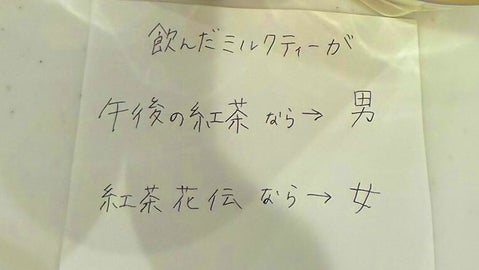 飲んだミルクティーが
午後の紅茶 なら→ 男
紅茶花伝 なら→ 女